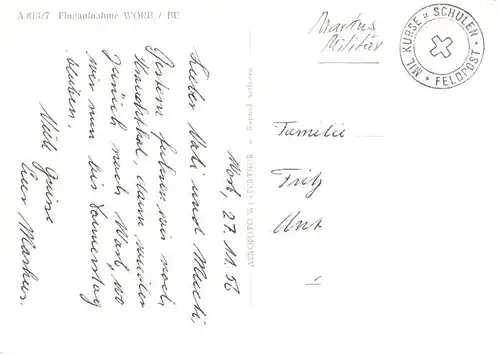 A 813/7 Flugaufnahme WORB / BE
Worb, 27. 11. 56
Lieber Vati und Mutti,
Gestern fuhren wir noch
dann wieder
zurück nach Worb, wo
wir nun bis Donnerstag
bleiben.
Viele Grüsse
Euer Markus.
AEROFOTO WINTERTHUR - Reprod. verboten
Markus
Militär
MIL. KURSE u. SCHULEN
FELDPOST
Familie
Fritz